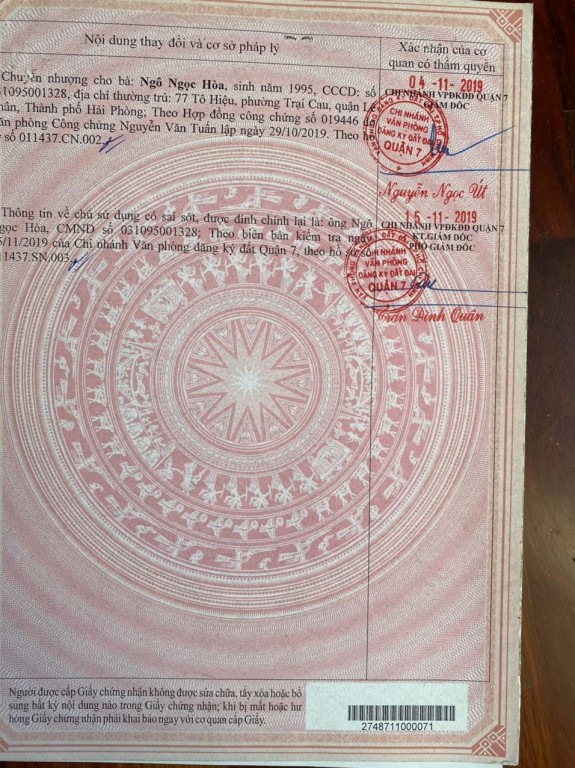 Nội dung thay đổi và cơ sở pháp lý
Xác nhận của cơ
quan có thẩm quyền
Chuyển nhượng cho bà: Ngô Ngọc Hòa, sinh năm 1995, CCCD: số
31095001328, địa chỉ thường trú: 77 Tô Hiệu, phường Trại Cau, quận
Thành phố Hải Phòng; Theo Hợp đồng công chứng số 019446 do
Văn phòng Công chứng Nguyễn Văn Tuấn lập ngày 29/10/2019. Theo hồ
số 011437.CN.002
04 -11- 2019
CHI NHÁNH VPĐKĐĐ QUẬN 7
GIÁM ĐỐC
CHI NHÁNH
VĂN PHÒNG
ĐĂNG KÝ ĐẤT ĐAI
QUẬN 7
Nguyễn Ngọc Út
Thông tin về chủ sử dụng có sai sót, được đính chính lại là: ông Ngô
Ngọc Hòa, CMND số 031095001328; Theo biên bản kiểm tra ngày
/11/2019 của Chi nhánh Văn phòng đăng ký đất Quận 7, theo hồ sơ số
11437.SN.003
15 -11- 2019
CHI NHÁNH VPĐKĐĐ QUẬN 7
KT.GIÁM ĐỐC
PHÓ GIÁM ĐỐC
CHI NHÁNH
VĂN PHÒNG
ĐĂNG KÝ ĐẤT ĐAI
QUẬN 7
Trần Đình Quán
Người được cấp Giấy chứng nhận không được sửa chữa, tẩy xóa hoặc bổ
sung bất kỳ nội dung nào trong Giấy chứng nhận; khi bị mất hoặc hư
hỏng Giấy chứng nhận phải khai báo ngay với cơ quan cấp Giấy.
2748711000071